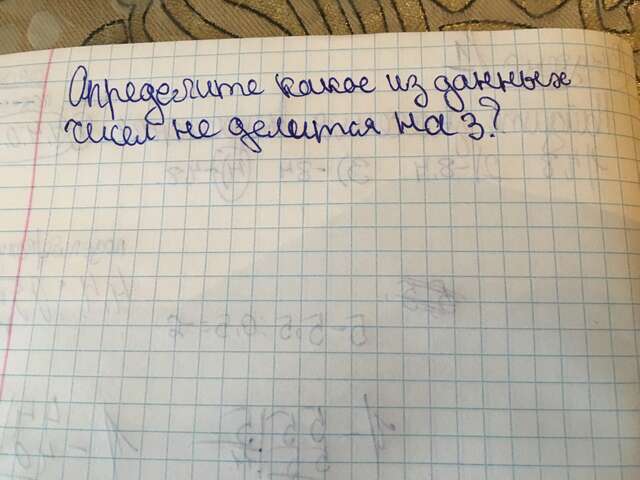 Определите какое из данных
чисел не делится на 3?